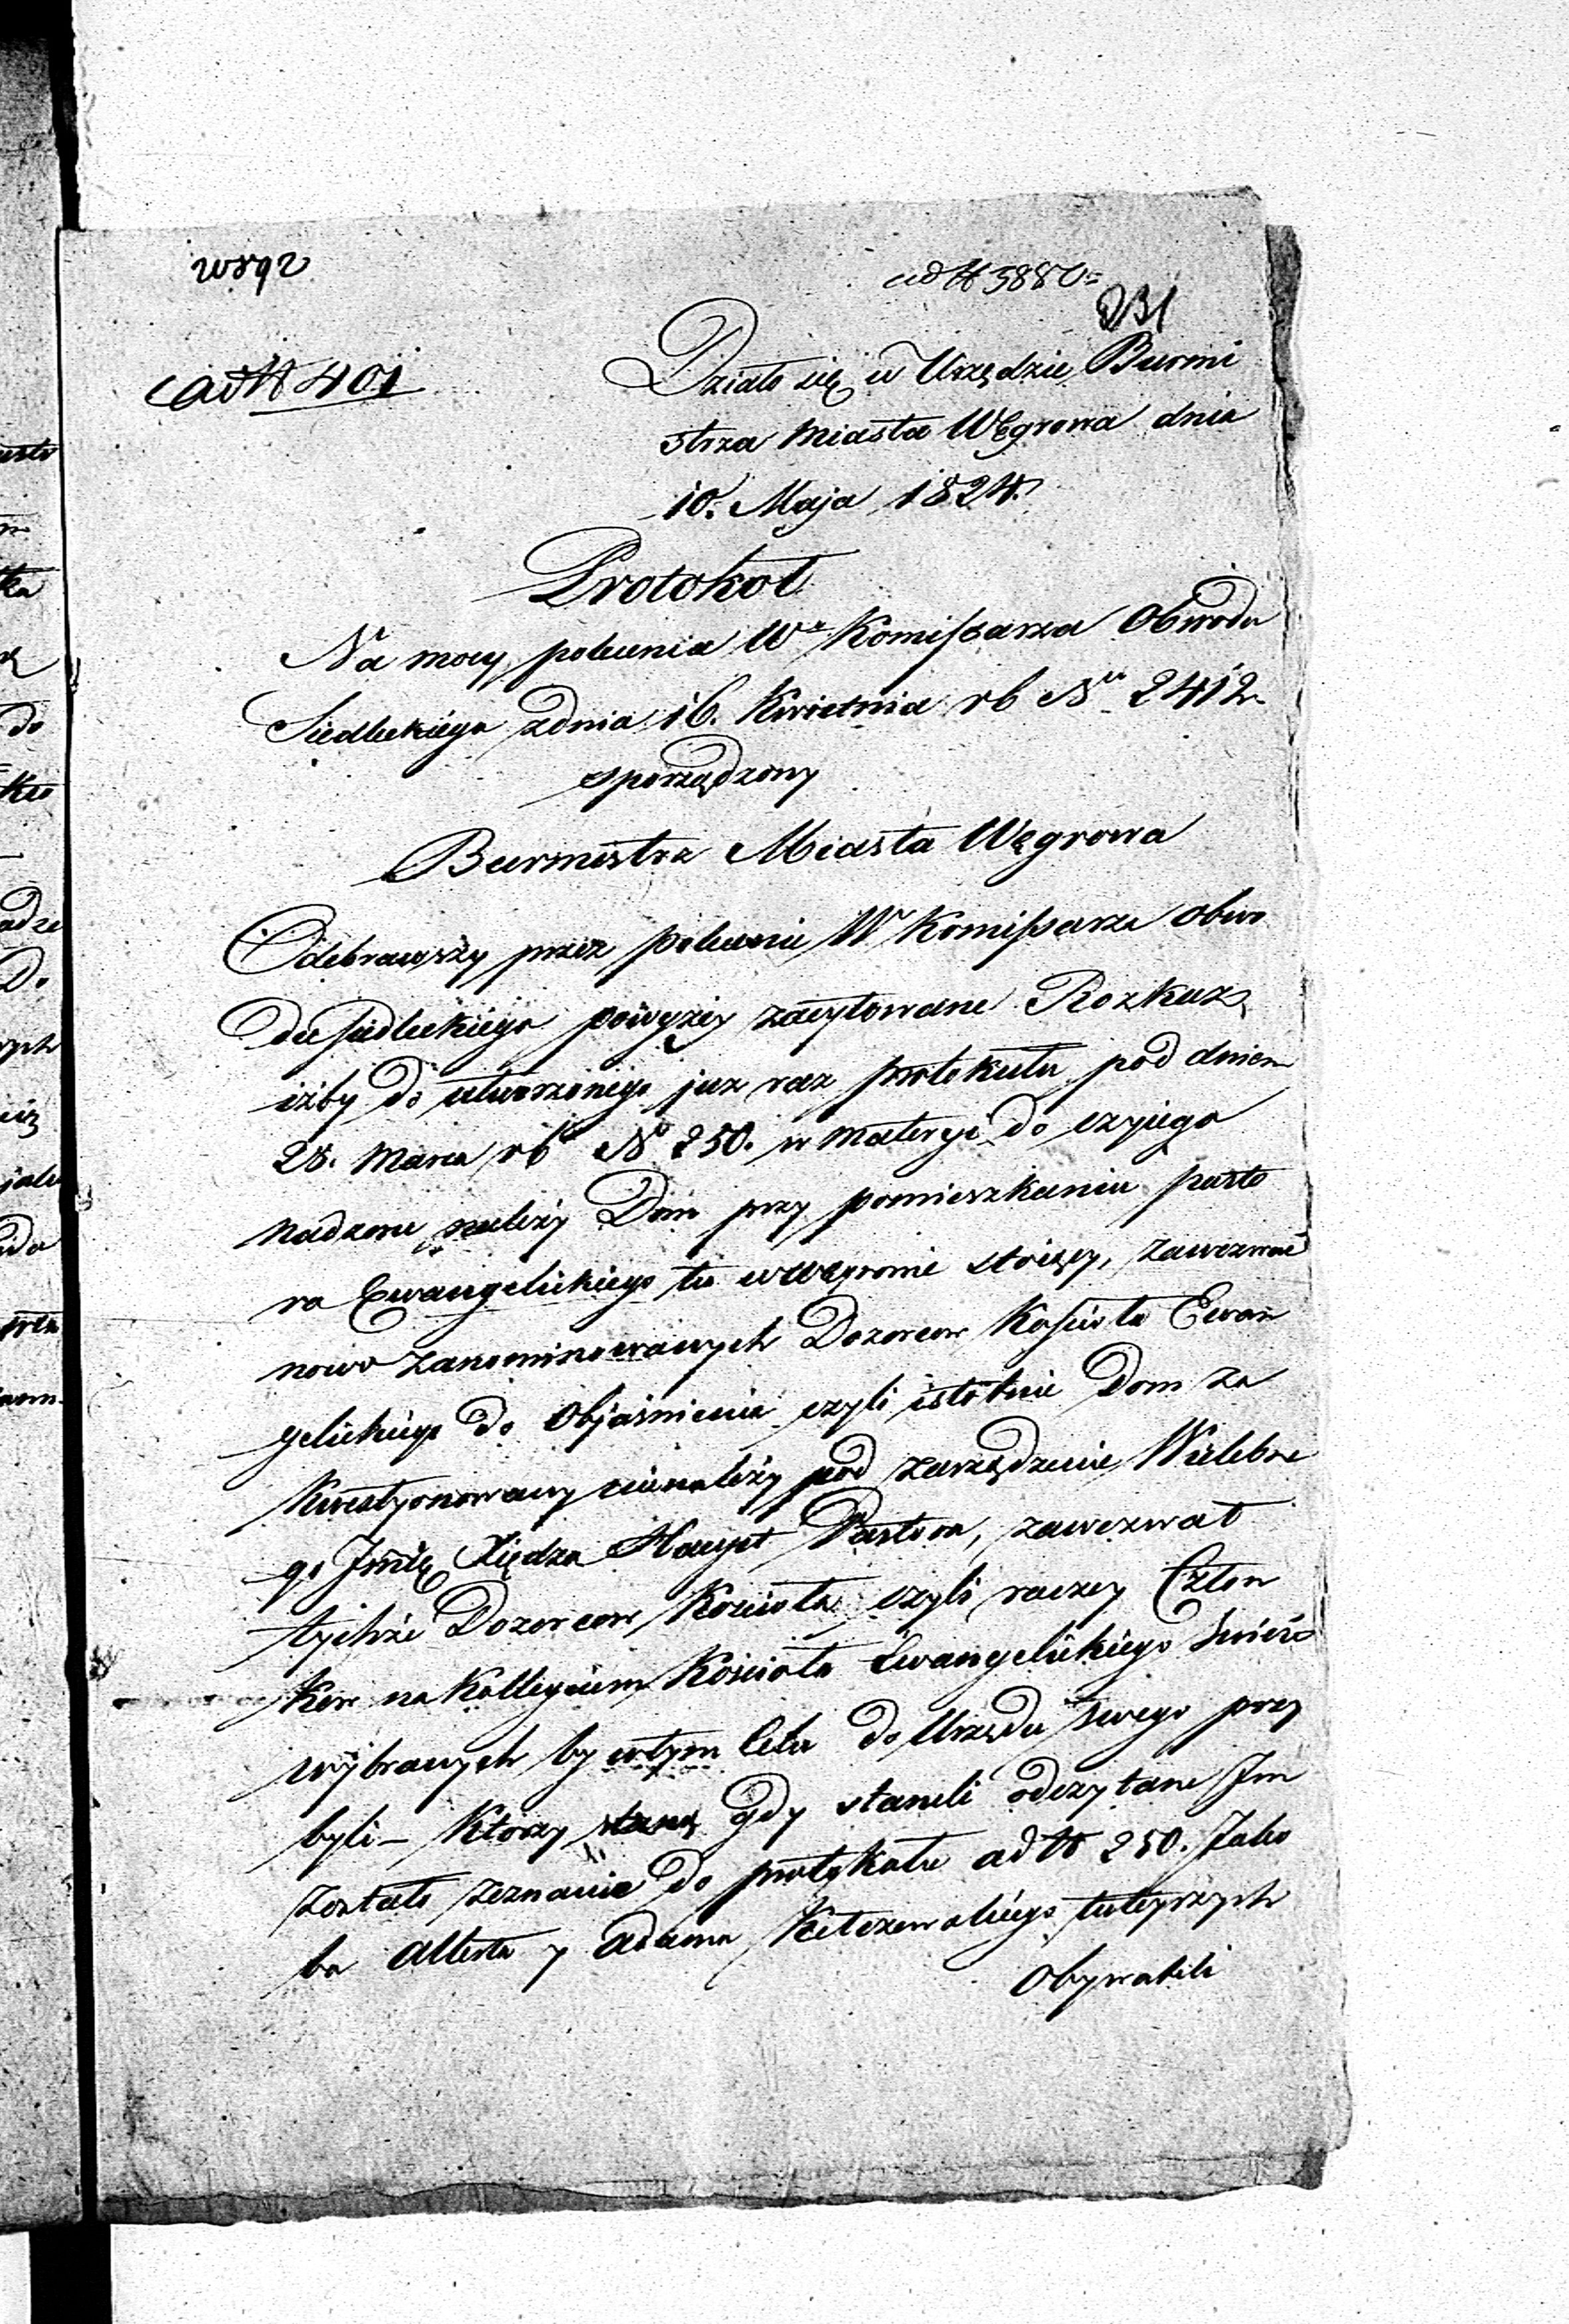 ad N 5880
231
ad N 401
Działo się w Urzędzie Burmi
strza Miasta Węgrowa dnia
10. Maja 1824.
Protokoł
Na mocy polecenia Wo Komissarza Obwodu
Siedleckiego z dnia 16. Kwietnia rb No 2412
sporządzony
Burmistrz Miasta Węgrowa
Odebrawszy przez polecenie Wo Komissarza obwo
du Siedleckiego powyżey zacytowane Rozkaz,
iżby do utworzonego juz raz protokułu pod dniem
28. Marca rb No 250. w materyi do czyiego
nadzoru należy Dom przy pomieszkaniu pasto
ra Ewangelickiego tu w Węgrowie stoiący, zawezwać
nowo zanominowanych Dozorcow Kościoła Ewan
gelickiego do objaśnienia czyli istotnie Dom za
kwestyonowany nienależy pod zarządzenie Wielebne
go Jmię Xiędza Haupt Pastora, zawezwał
tychże Dozorcow Kościoła czyli raczey Człon
kow na Kollegium Kościoła Ewangelickiego świeżo
wybranych by w tym celu do Urzędu swego przy
byli – Ktorzy gdy staneli odczytane Im
zostało zeznanie do protokułu ad N 250. Jako
ba Alterta y Adama tuteyszych
Obywateli